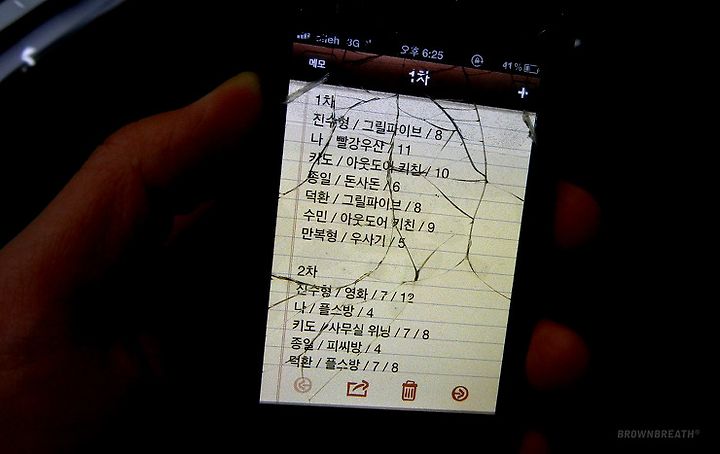 olleh 3G 오후 6:25 41%
메모 1차 +
1차
진수형 / 그릴파이브 / 8
나 / 빨강우산 / 11
키도 / 아웃도어 키친 / 10
종일 / 돈사돈 / 6
덕환 / 그릴파이브 / 8
수민 / 아웃도어 키친 / 9
만복형 / 우사기 / 5
2차
진수형 / 영화 / 7 / 12
나 / 플스방 / 4
키도 / 사무실 위닝 / 7 / 8
종일 / 피씨방 / 4
덕환 / 플스방 / 7 / 8
BROWNBREATH®